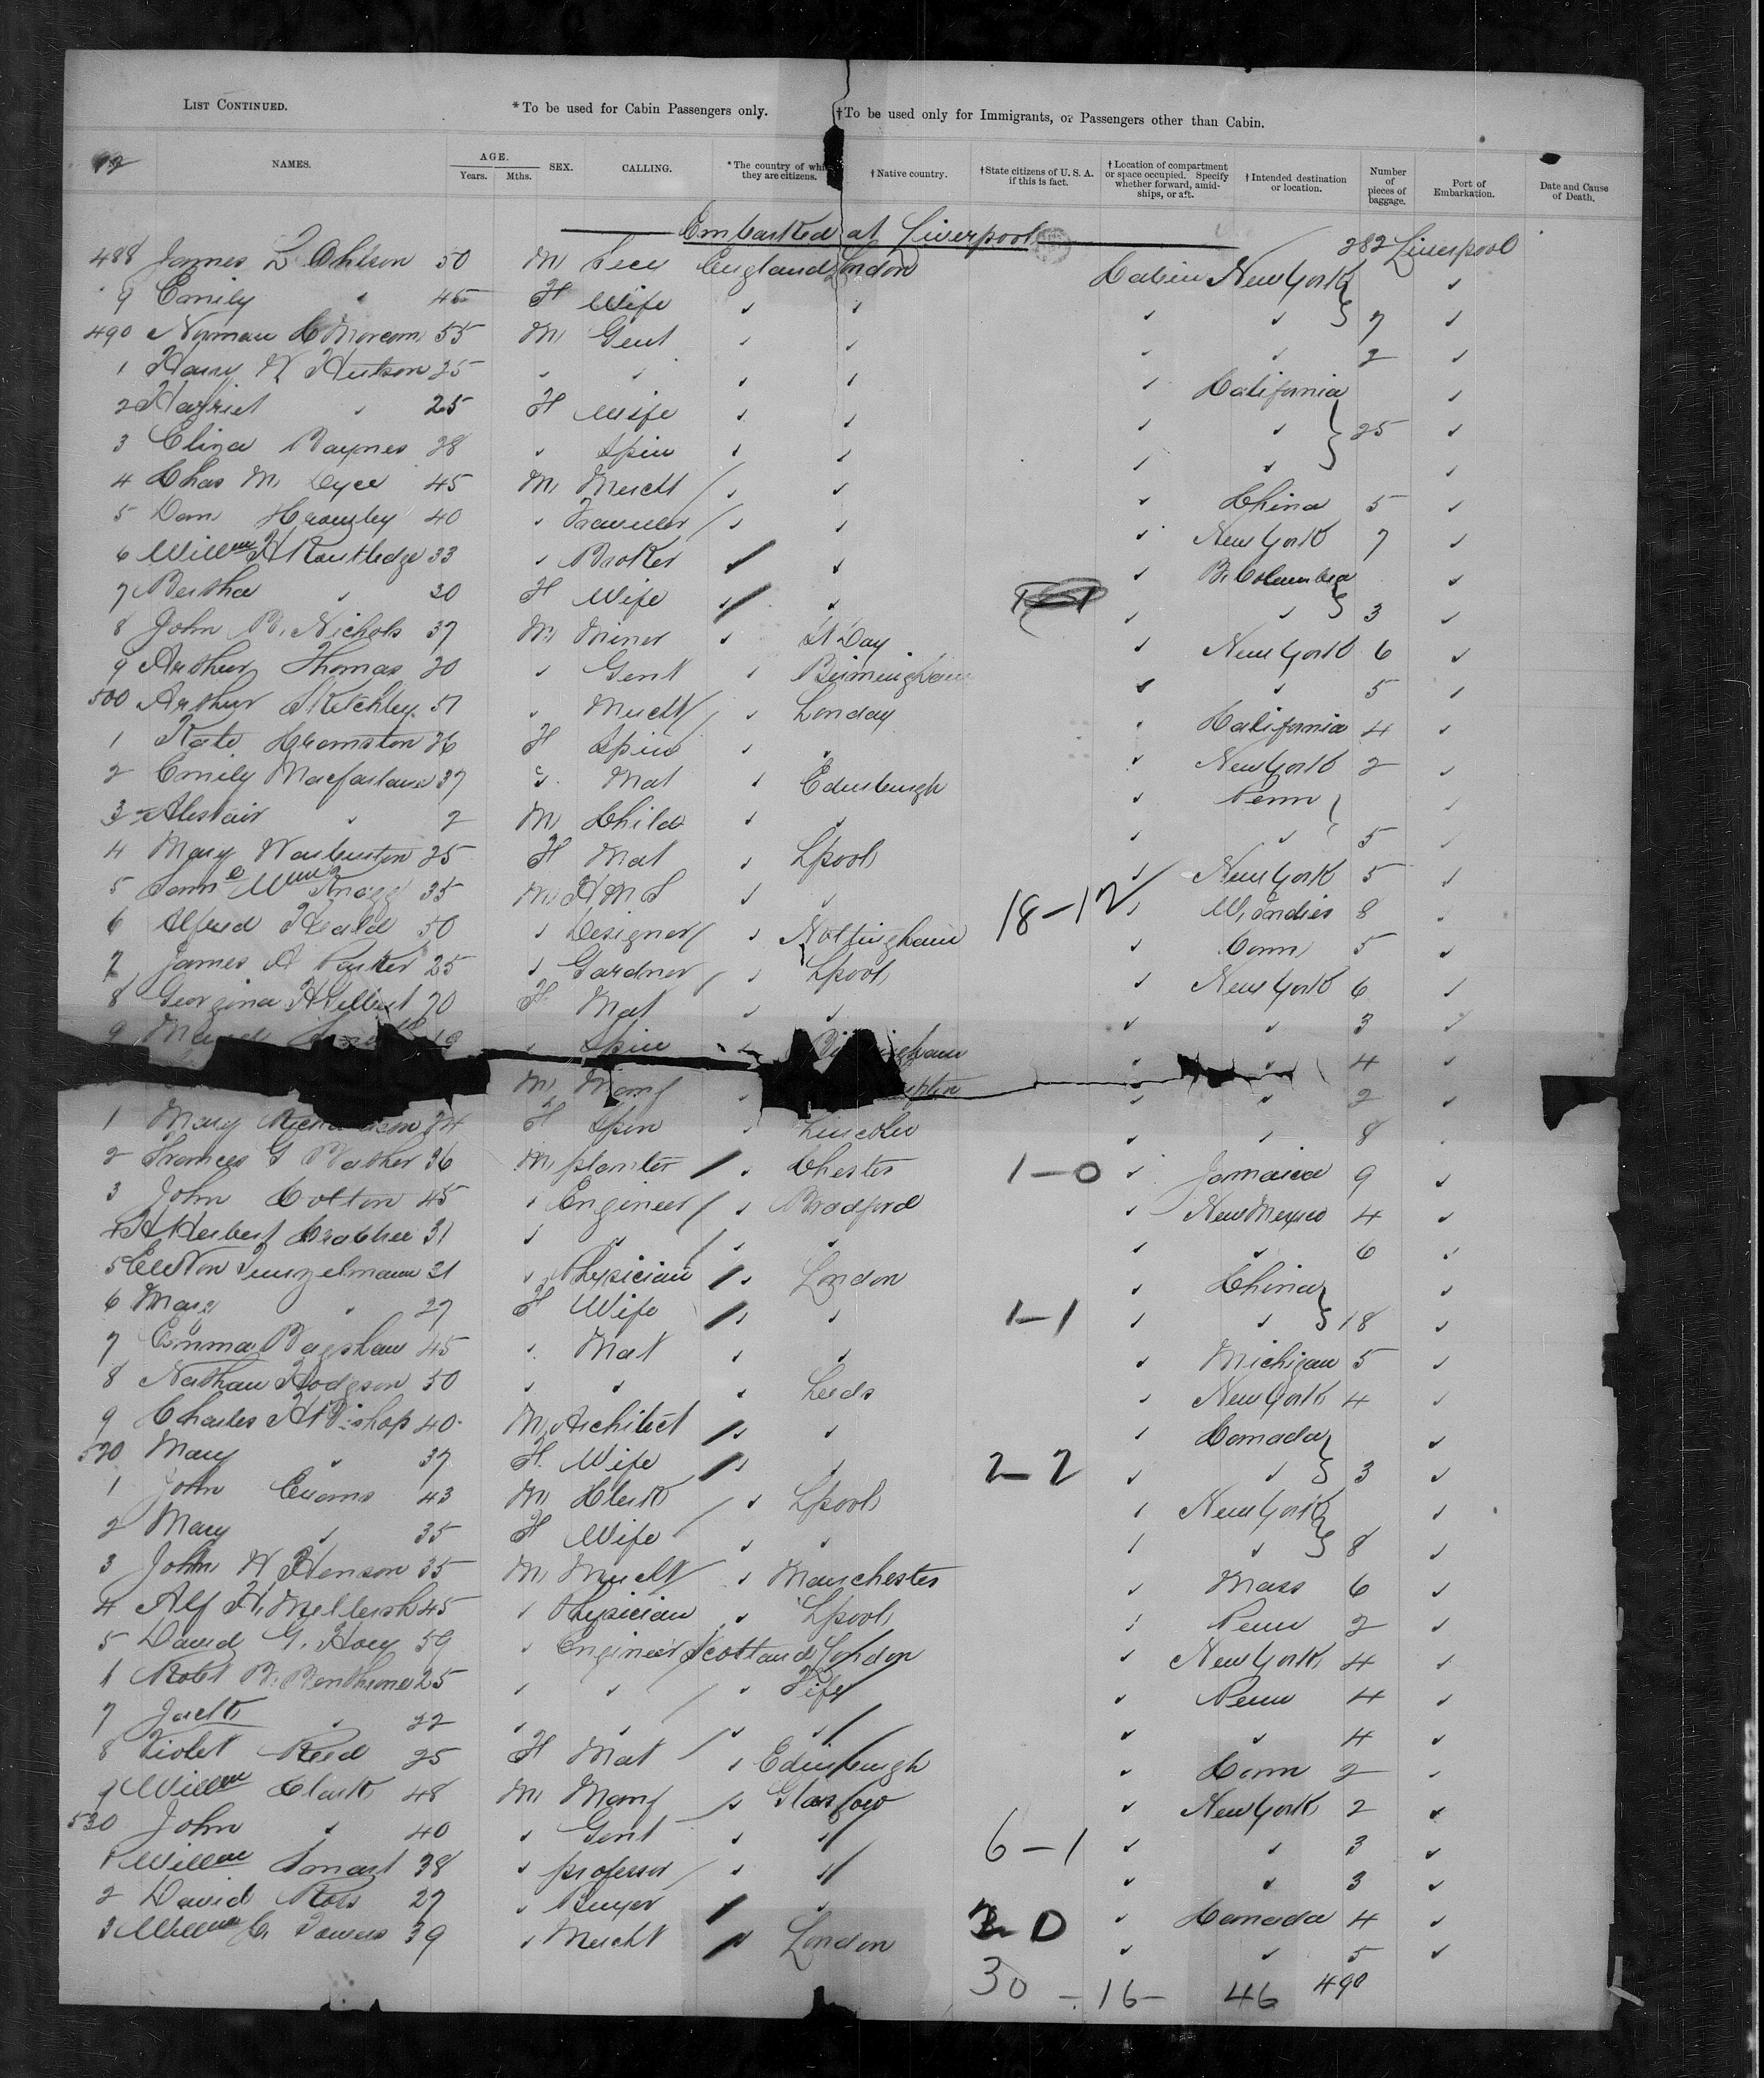 List Continued. *To be used for Cabin Passengers only. †To be used only for Immigrants, or Passengers other than Cabin.
NAMES. AGE. Years. Mths. SEX. CALLING. *The country of whi they are citizens. †Native country. †State citizens of U. S. A. if this is fact. †Location of compartment or space occupied. Specify whether forward, amid-ships, or aft. †Intended destination or location. Number of pieces of baggage. Port of Embarkation. Date and Cause of Death.
Embarked at Liverpool 282
488 James L 50 M England London Cabin New York Liverpool
9 Emily " 45 F Wife " " " " 7 "
490 Norman C Morcom 55 M Gent " " " " 2 "
1 Harry W Hutson 25 " " " " " California "
2 Harriet " 25 F Wife " " " " 25 "
3 Eliza Baynes 28 " Spin " " " " "
4 Chas M. Dyce 45 M Mercht " " " China 5 "
5 Dan 40 " " " " New York 7 "
6 Willm H Routledge 33 " Broker " " " Br. Columbia "
7 Bertha " 30 F Wife " " " " 3 "
8 John B. Nichols 37 M Miner " St Day " New York 6 "
9 Arthur Thomas 20 " Gent " Birmingham " " 5 "
500 Arthur Sketchley 51 " Mercht " London " California 4 "
1 Kate Cramston 26 F Spin " " " New York 2 "
2 Emily Macfarlane 37 " Mat " Edinburgh " Penn "
3 Alistair " 2 M Child " " " " 5 "
4 Mary Warburton 25 F Mat " Lpool " New York 5 "
5 Wm Knagg 35 M H M S " " 18-12 " W. Indies 8 "
6 Alfred Heald 50 " Designer " Nottingham " Conn 5 "
7 James A Parker 25 " Gardner " Lpool " New York 6 "
8 Georgina 70 F Mat " " " " 3 "
9 Maud " Spin " " " 4 "
M Manf " " " 2 "
1 Mary 24 F Spin " Lincoln " " 8 "
2 Frances G 36 M planter " Chester 1-0 " Jamaica 9 "
3 John Cotton 45 " Engineer " Bradford " New Mexico 4 "
4 Herbert Crabtree 31 " " " " " " 6 "
5 31 " Physician " London " China "
6 Mary " 27 F Wife " " 1-1 " " 18 "
7 Emma Bagshaw 45 " Mat " " " Michigan 5 "
8 Nathan Hodgson 50 " " " Leeds " New York 4 "
9 Charles H Bishop 40 M Architect " " " Canada "
520 Mary " 37 F Wife " " 2-2 " " 3 "
1 John Evans 43 M Clerk " Lpool " New York "
2 Mary " 35 F Wife " " " " 8 "
3 John H Henson 35 M Mercht " Manchester " Mass 6 "
4 Alf H. Mellersh 45 " Physician " Lpool " Penn 2 "
5 David G. Hoey 59 " Engineer Scotland London " New York 4 "
6 Robt B. Benthune 25 " " " Fife " Penn 4 "
7 Jack " 22 " " " " " " 4 "
8 Violet Reed 25 F Mat " Edinburgh " Conn 2 "
9 Willm Clark 48 M Manf " Glasgow " New York 2 "
530 John " 40 " Gent " " 6-1 " " 3 "
1 Willm Smart 38 " professor " " " " 3 "
2 David Ross 27 " Buyer " " " Canada 4 "
3 Willm C. 39 " Mercht " London " " 5 "
30 - 16 - 46 490